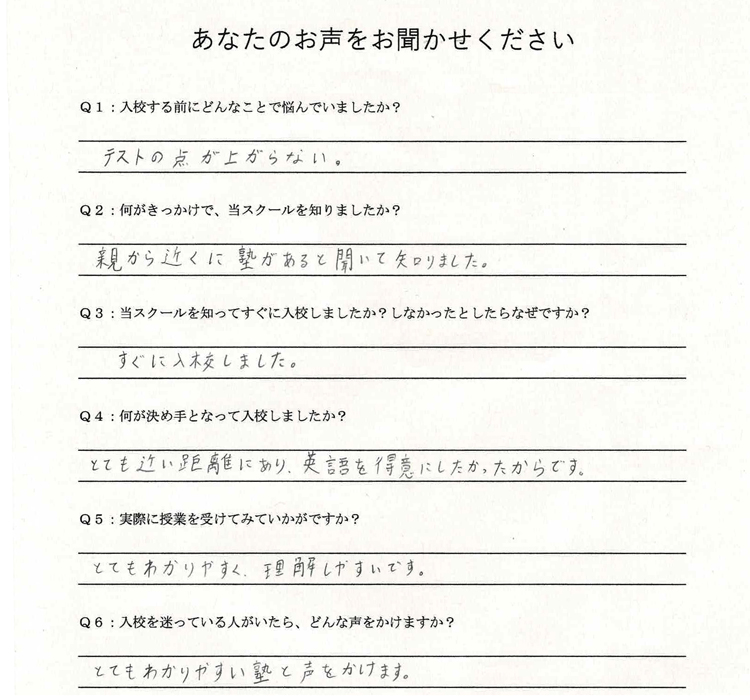 あなたのお声をお聞かせください
Q1:入校する前にどんなことで悩んでいましたか?
テストの点が上がらない。
Q2:何がきっかけで、当スクールを知りましたか?
親から近くに塾があると聞いて知りました。
Q3:当スクールを知ってすぐに入校しましたか?しなかったとしたらなぜですか?
すぐに入校しました。
Q4:何が決め手となって入校しましたか?
とても近い距離にあり、英語を得意にしたかったからです。
Q5:実際に授業を受けてみていかがですか?
とてもわかりやすく、理解しやすいです。
Q6:入校を迷っている人がいたら、どんな声をかけますか?
とてもわかりやすい塾と声をかけます。